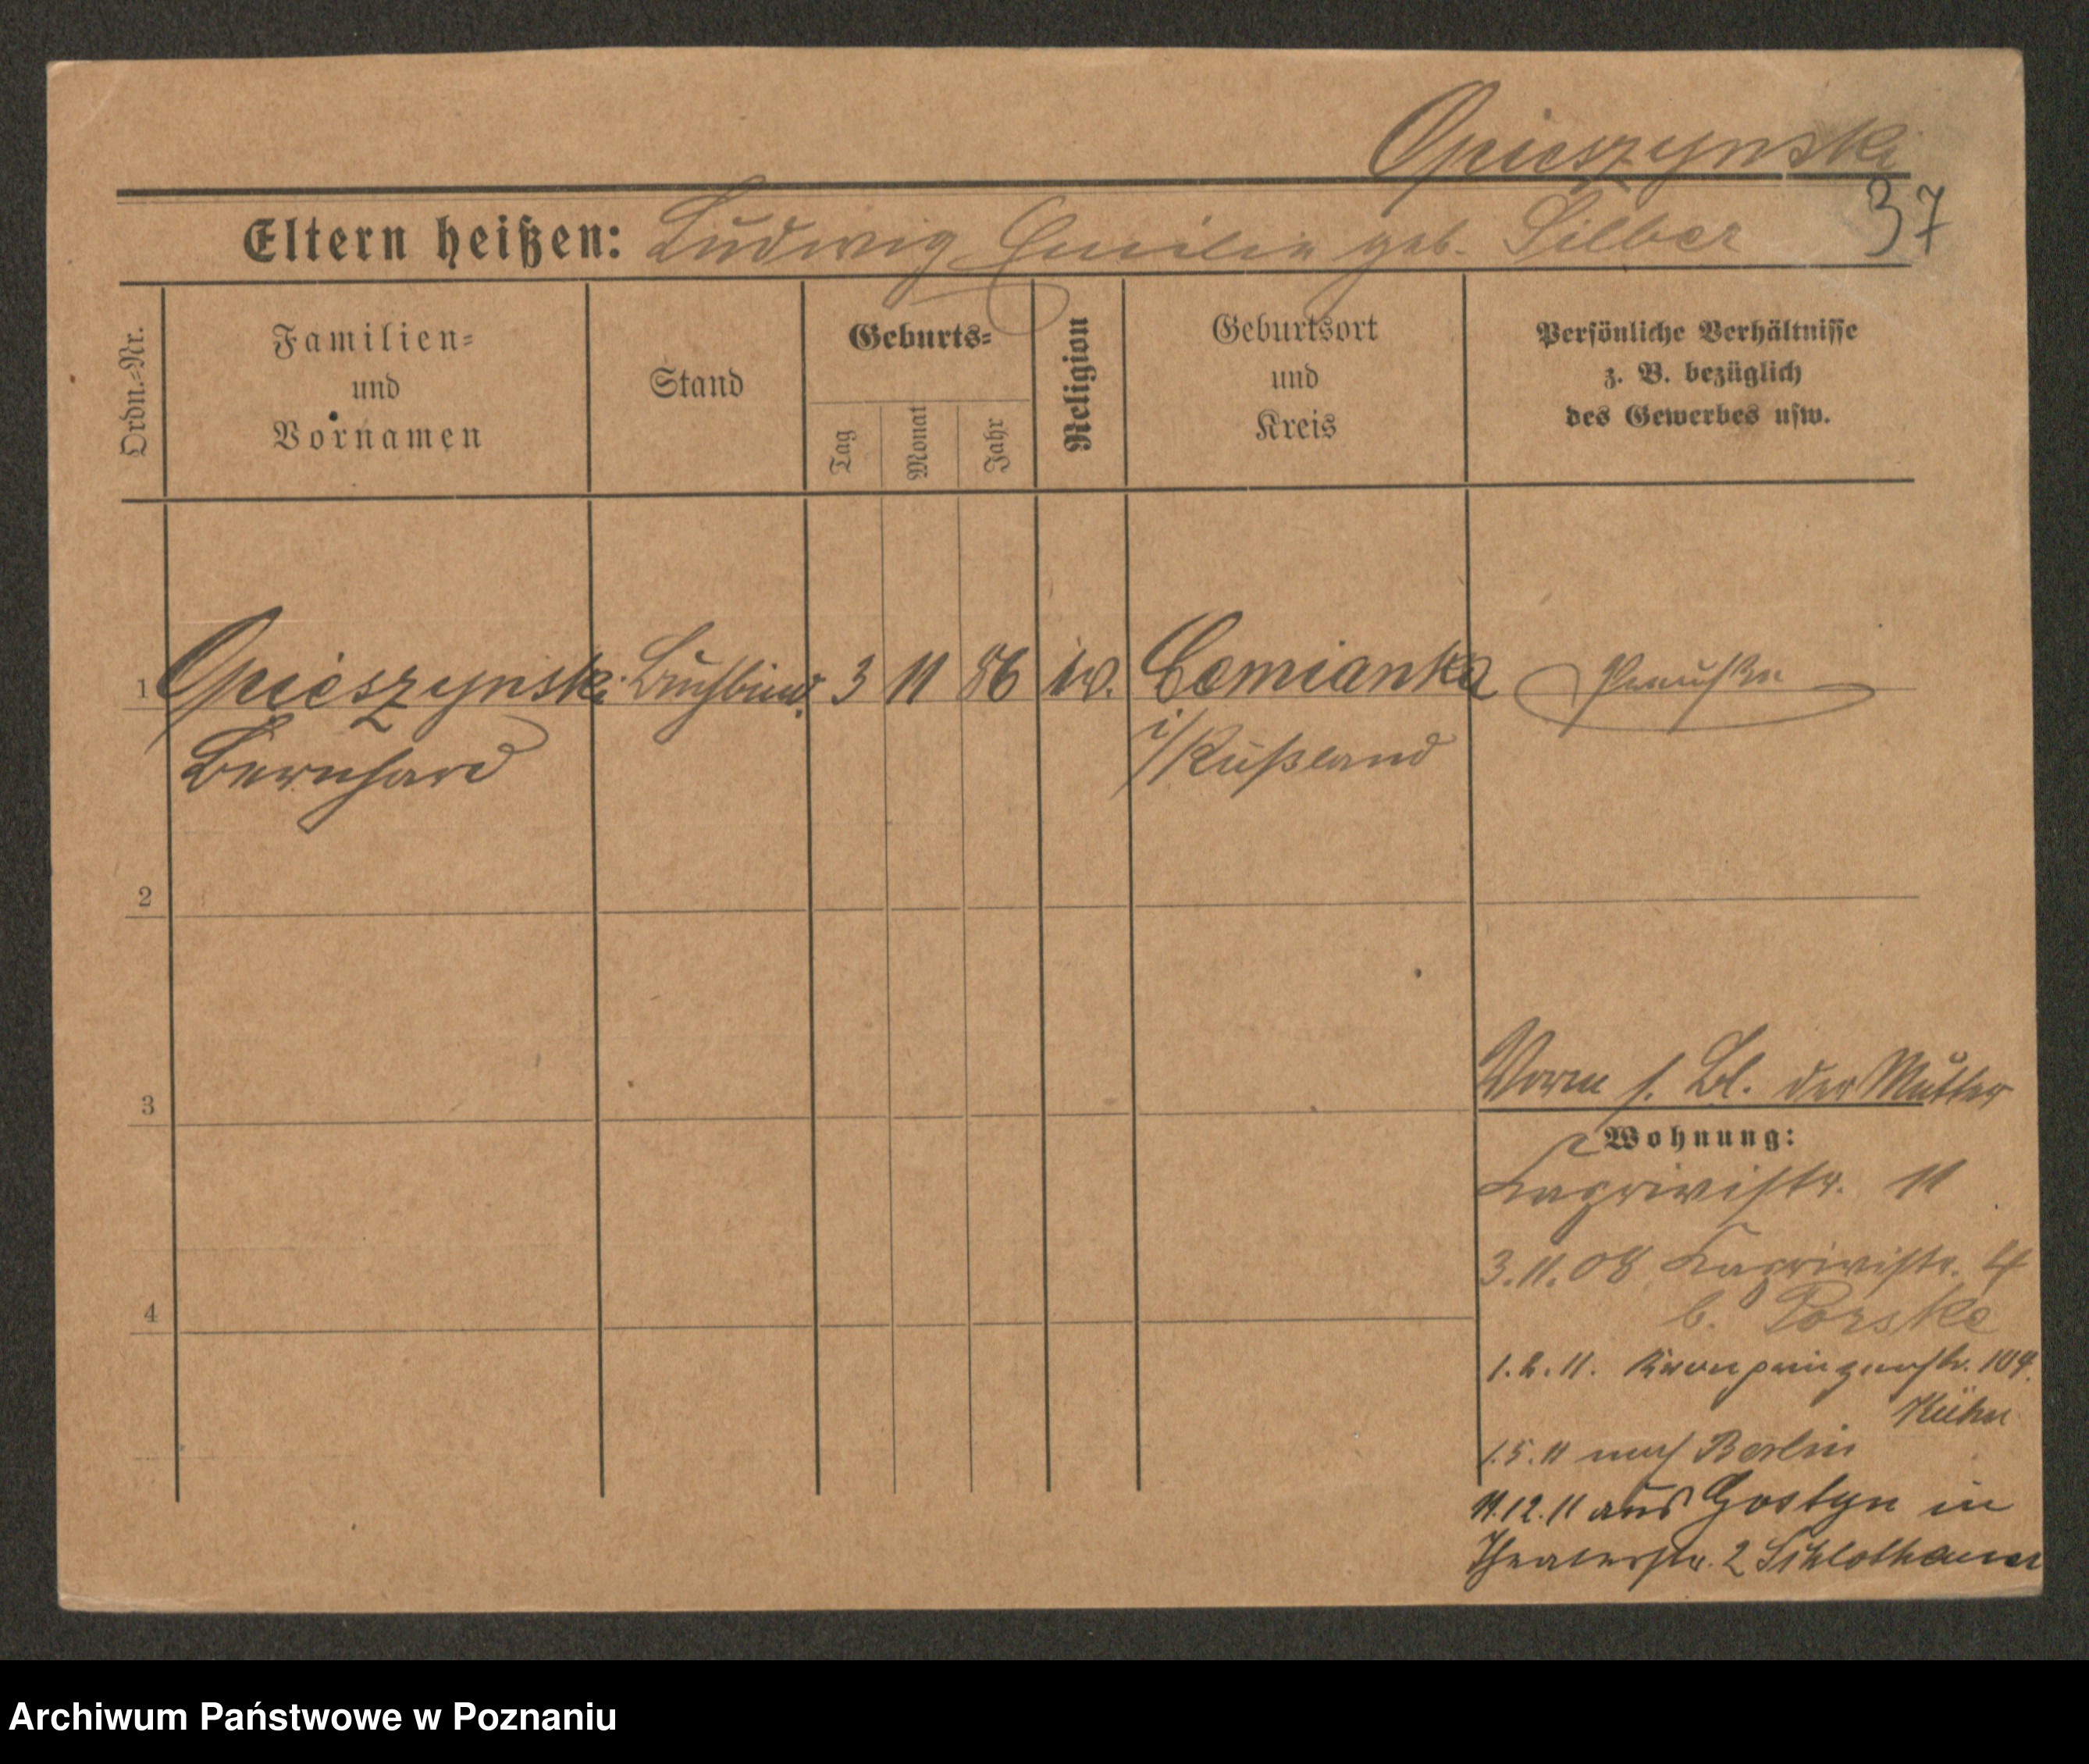 Opieszynski
37
Eltern heißen: Ludwig Emilie geb. Silber
Ordn.-Nr.
Familien-
und
Vornamen
Stand
Geburts-
Tag
Monat
Jahr
Religion
Geburtsort
und
Kreis
Persönliche Verhältnisse
z. B. bezüglich
des Gewerbes usw.
1 Opieszynski Buchbind. 3 11 86 Preuße
Bernhard
i/Rußland
2
3
4
Vorm s. Bl. der Mutter
Wohnung:
Kaprivistr. 11
3.11.08 Kaprivistr. 4
b. Porske
1.2.11. Kronprinzenstr. 109.
Kühn
1.5.11 nach Berlin
11.12.11 aus Gostyn in
Theaterstr. 2 Schlothauer
Archiwum Państwowe w Poznaniu